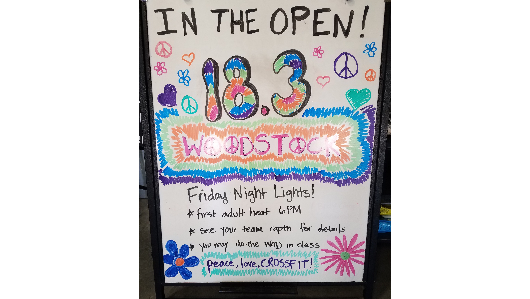 IN THE OPEN!
18.3
WOODSTOCK
Friday Night Lights!
* first adult heat 6PM
* see your team captn for details
* you may do the WOD in class
peace, love, CROSSFIT!